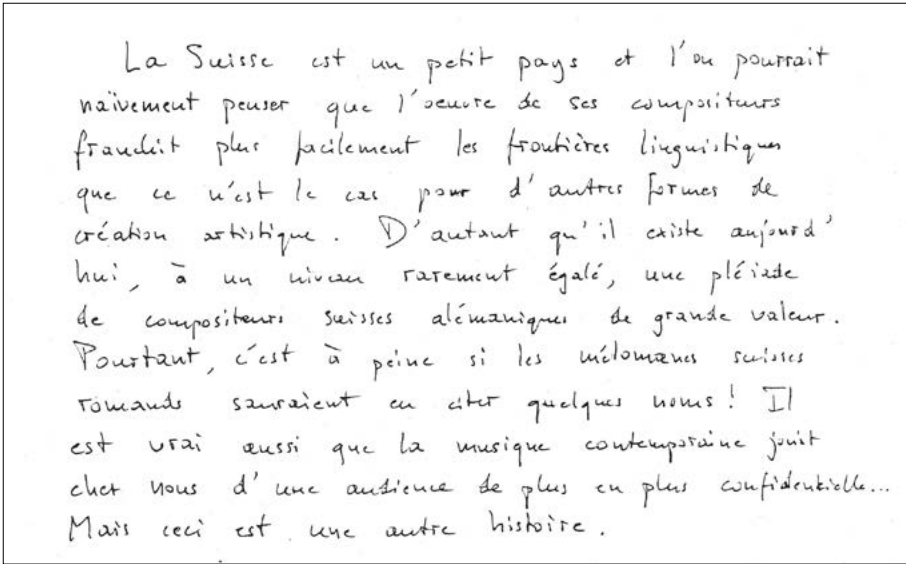 La Suisse est un petit pays et l'on pourrait
naïvement penser que l'oeuvre de ses compositeurs
franchit plus facilement les frontières linguistiques
que ce n'est le cas pour d'autres formes de
création artistique. D'autant qu'il existe aujourd'
hui, à un niveau rarement égalé, une pléiade
de compositeurs suisses alémaniques de grande valeur.
Pourtant, c'est à peine si les mélomanes suisses
romands sauraient en citer quelques noms ! Il
est vrai aussi que la musique contemporaine jouit
chez nous d'une audience de plus en plus confidentielle...
Mais ceci est une autre histoire.